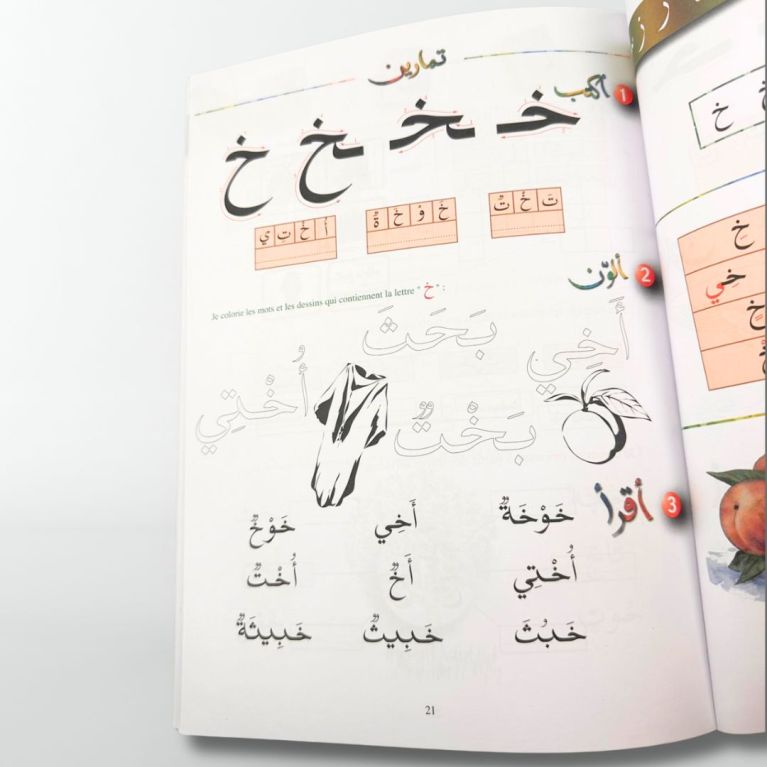 تمارين
1 أكتب
خ خ خ خ
تَ خْ تٌ
خَ وْ خَ ةٌ
أُ خْ تِ ي
2 ألوّن
Je colorie les mots et les dessins qui contiennent la lettre " خ " :
أَخِي
بَحَثَ
أُخْتِي
بَخْتٌ
3 أقرأ
خَوْخَةٌ أَخِي خَوْخٌ
أُخْتِي أَخٌ أُخْتٌ
خَبُثَ خَبِيثٌ خَبِيثَةٌ
21
خ
خِ
خِي